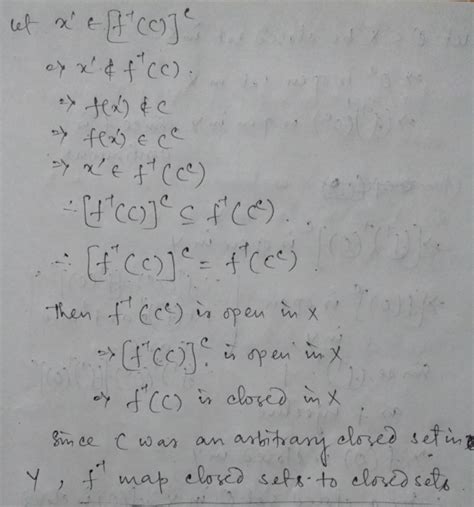 let x' ∈ [f⁻¹(C)]ᶜ
⇒ x' ∉ f⁻¹(C).
⇒ f(x') ∉ C
⇒ f(x') ∈ Cᶜ
⇒ x' ∈ f⁻¹(Cᶜ)
∴ [f⁻¹(C)]ᶜ ⊆ f⁻¹(Cᶜ).
∴ [f⁻¹(C)]ᶜ = f⁻¹(Cᶜ).
Then f⁻¹(Cᶜ) is open in X
⇒ [f⁻¹(C)]ᶜ is open in X
⇒ f⁻¹(C) is closed in X
Since C was an arbitrary closed set in
Y, f⁻¹ map closed sets to closed sets.